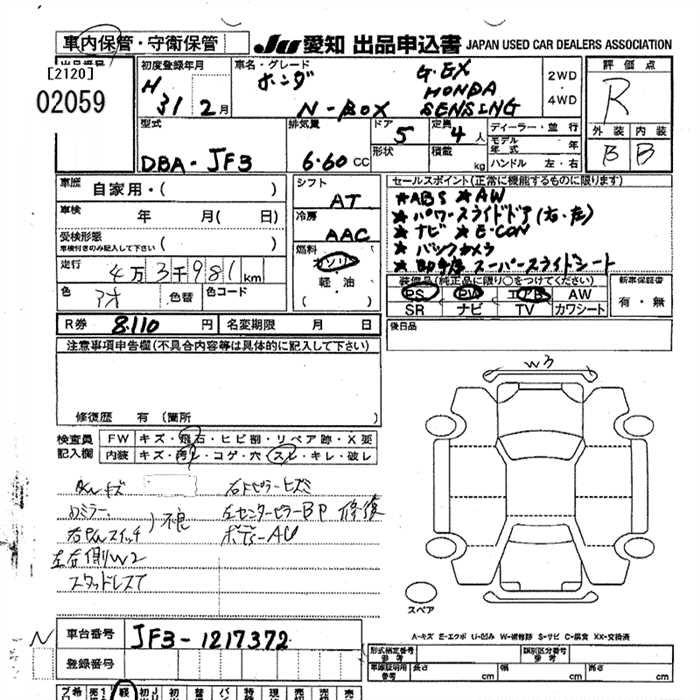 車内保管・守衛保管
JU 愛知 出品申込書 JAPAN USED CAR DEALERS ASSOCIATION
出品番号
[2120]
02059
初度登録年月
H31 2月
車名・グレード
ホンダ
N-BOX
G・EX
HONDA
SENSING
2WD
・
4WD
評価点
R
外装 内装
B B
型式
DBA-JF3
排気量
6.60 CC
ドア 5
形状
定員 4人
積載 kg
ディーラー・並行
モデル年式 年
ハンドル 左・右
車歴 自家用・( )
車検 年 月( 日)
受検形態
車検付きのみ記入して下さい ( )
走行 4万3千981km
色 アオ 色替 色コード
シフト
AT
冷房
AAC
燃料
ガソリン
軽・油
セールスポイント(正常に機能するものに限ります)
★ABS ★AW
★パワースライドドア(右、左)
★ナビ ★E-CON
★バックカメラ
★助手席スーパースライドシート
装備品(純正品に限り○をつけてください)
PS PW エアB AW
SR ナビ TV カワシート
新車保証書
有・無
R券 8110 円 名変期限 月 日
後日品
注意事項申告欄(不具合内容等は具体的に記入して下さい)
修復歴 有 (箇所 )
検査員
記入欄
FW キズ・飛石・ヒビ割・リペア跡・X要
内装 キズ・汚レ・コゲ・穴・スレ・キレ・破レ
右ドアミラー
不良
左右側W2
スタッドレスT
左センターピラーBP 修復
W3
スペア
A-キズ E-エクボ U-凹み W-補修跡 S-サビ C-腐食 XX-交換済
N
車台番号 JF3-1217372
登録番号
形式指定番号
参考
類別区分番号
参考
車庫証明用
参考
長さ cm 幅 cm 高さ cm